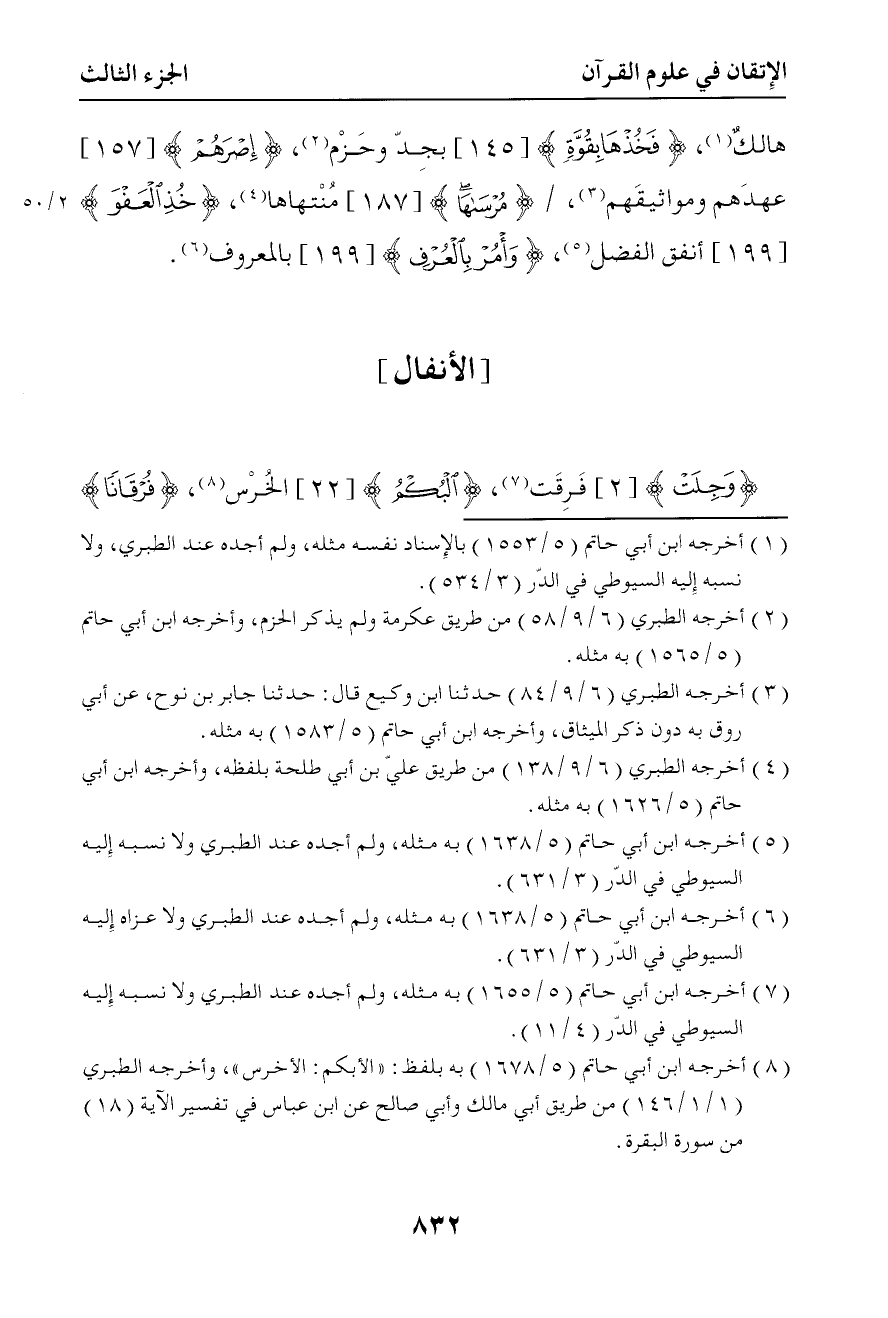 الإتقان في علوم القرآن الجزء الثالث
هالكٌ(١)، ﴿ فَخُذْهَا بِقُوَّةٍ ﴾ [ ١٤٥ ] بجِدّ وحَزْم(٢)، ﴿ إِصْرَهُمْ ﴾ [ ١٥٧ ]
عهدَهم ومواثيقَهم(٣)، / ﴿ مُرْسَىٰهَا ﴾ [ ١٨٧ ] مُنْتهاها(٤)، ﴿ خُذِ ٱلْعَفْوَ ﴾ ٥٠/٢
[ ١٩٩ ] أنفق الفضل(٥)، ﴿ وَأْمُرْ بِٱلْعُرْفِ ﴾ [ ١٩٩ ] بالمعروف(٦).
[ الأنفال ]
﴿ وَجِلَتْ ﴾ [ ٢ ] فَرِقَت(٧)، ﴿ ٱلْبُكْمُ ﴾ [ ٢٢ ] الخُرْس(٨)، ﴿ فُرْقَانًا ﴾
( ١ ) أخرجه ابن أبي حاتم ( ٥/ ١٥٥٣ ) بالإسناد نفسه مثله، ولم أجده عند الطبري، ولا
نسبه إليه السيوطي في الدّر ( ٣/ ٥٣٤ ).
( ٢ ) أخرجه الطبري ( ٦/ ٩/ ٥٨ ) من طريق عكرمة ولم يذكر الحزم، وأخرجه ابن أبي حاتم
( ٥/ ١٥٦٥ ) به مثله.
( ٣ ) أخرجه الطبري ( ٦/ ٩/ ٨٤ ) حدثنا ابن وكيع قال: حدثنا جابر بن نوح، عن أبي
روق به دون ذكر الميثاق، وأخرجه ابن أبي حاتم ( ٥/ ١٥٨٣ ) به مثله.
( ٤ ) أخرجه الطبري ( ٦/ ٩/ ١٣٨ ) من طريق عليّ بن أبي طلحة بلفظه، وأخرجه ابن أبي
حاتم ( ٥/ ١٦٢٦ ) به مثله.
( ٥ ) أخرجه ابن أبي حاتم ( ٥/ ١٦٣٨ ) به مثله، ولم أجده عند الطبري ولا نسبه إليه
السيوطي في الدّر ( ٣/ ٦٣١ ).
( ٦ ) أخرجه ابن أبي حاتم ( ٥/ ١٦٣٨ ) به مثله، ولم أجده عند الطبري ولا عزاه إليه
السيوطي في الدّر ( ٣/ ٦٣١ ).
( ٧ ) أخرجه ابن أبي حاتم ( ٥/ ١٦٥٥ ) به مثله، ولم أجده عند الطبري ولا نسبه إليه
السيوطي في الدّر ( ٤/ ١١ ).
( ٨ ) أخرجه ابن أبي حاتم ( ٥/ ١٦٧٨ ) به بلفظ: «الأبكم: الأخرس»، وأخرجه الطبري
( ١/ ١/ ١٤٦ ) من طريق أبي مالك وأبي صالح عن ابن عباس في تفسير الآية ( ١٨ )
من سورة البقرة.
٨٣٢